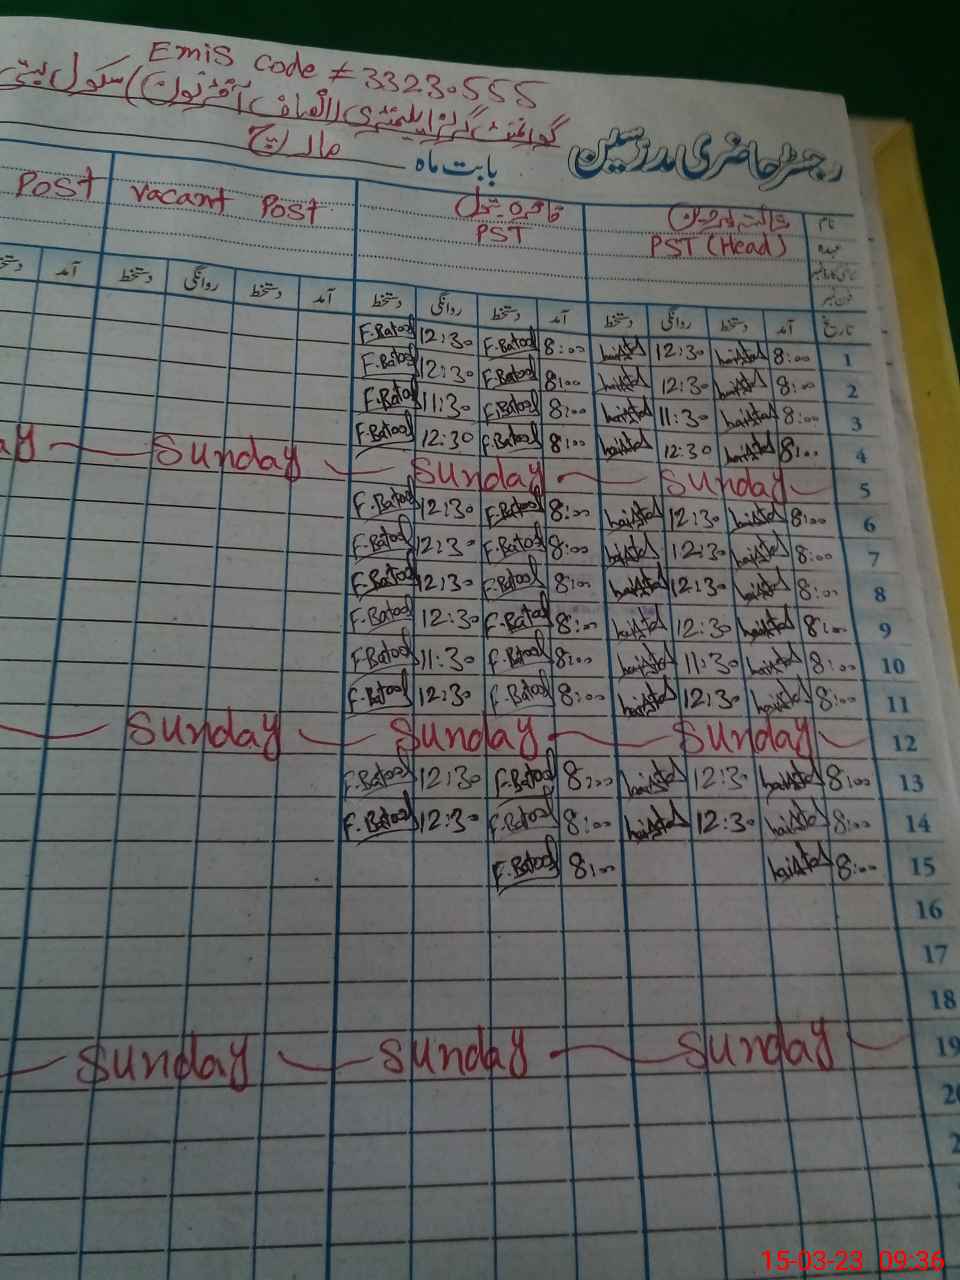 Emis code # 3323.555
گورنمنٹ گرلز ایلیمنٹری (انصاف آفٹرنون) سکول بستی
رجسٹر حاضری مدرسین بابت ماہ مارچ
نام PST (Head) PST Vacant Post Post
عہدہ
فون نمبر
تاریخ آمد دستخط روانگی دستخط آمد دستخط روانگی دستخط آمد دستخط روانگی دستخط آمد دستخط
1 8:00 12:30 8:00 F.Batool 12:30 F.Batool
2 8:00 12:30 8:00 F.Batool 12:30 F.Batool
3 8:00 11:30 8:00 F.Batool 11:30 F.Batool
4 8:00 12:30 8:00 F.Batool 12:30 F.Batool
5 Sunday Sunday Sunday
6 8:00 12:30 8:00 F.Batool 12:30 F.Batool
7 8:00 12:30 8:00 F.Batool 12:30 F.Batool
8 8:00 12:30 8:00 F.Batool 12:30 F.Batool
9 8:00 12:30 8:00 F.Batool 12:30 F.Batool
10 8:00 11:30 8:00 F.Batool 11:30 F.Batool
11 8:00 12:30 8:00 F.Batool 12:30 F.Batool
12 Sunday Sunday Sunday
13 8:00 12:30 8:00 F.Batool 12:30 F.Batool
14 8:00 12:30 8:00 F.Batool 12:30 F.Batool
15 8:00 8:00 F.Batool
16
17
18
19 Sunday Sunday Sunday
15-03-23 09:36